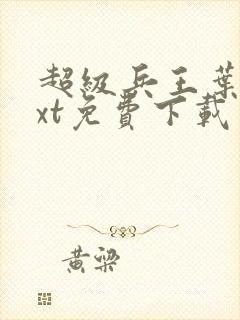 超級兵王葉
xt免費下載
黃梁